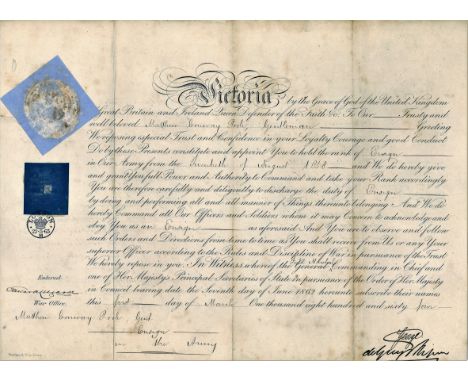 Victoria by the Grace of God of the United Kingdom
Great Britain and Ireland Queen Defender of the Faith &c. To Our Trusty and
well beloved Matthew Conway Gentleman Greeting
We reposing especial Trust and Confidence in your Loyalty Courage and good Conduct
Do by these Presents constitute and appoint You to hold the rank of Ensign
in Our Army from the of August 18 and We do hereby give
and grant You full Power and Authority to Command and take your Rank accordingly
You are therefore carefully and diligently to discharge the duty of Ensign
by doing and performing all and all manner of Things thereunto belonging And We do
hereby Command all Our Officers and Soldiers whom it may Concern to acknowledge and
obey You as an Ensign as aforesaid And You are to observe and follow
such Orders and Directions from time to time as You shall receive from Us or any Your
superior Officer according to the Rules and Discipline of War in pursuance of the Trust
We hereby repose in you. In Witness whereof the General Commanding in Chief and
one of Her Majesty's Principal Secretaries of State in pursuance of the Order of Her Majesty
in Council bearing date the Seventh day of June 1862 hereunto subscribe their names
this first day of March One thousand eight hundred and sixty four
Entered
War Office.
Matthew Conway Gent
Ensign
in the Army